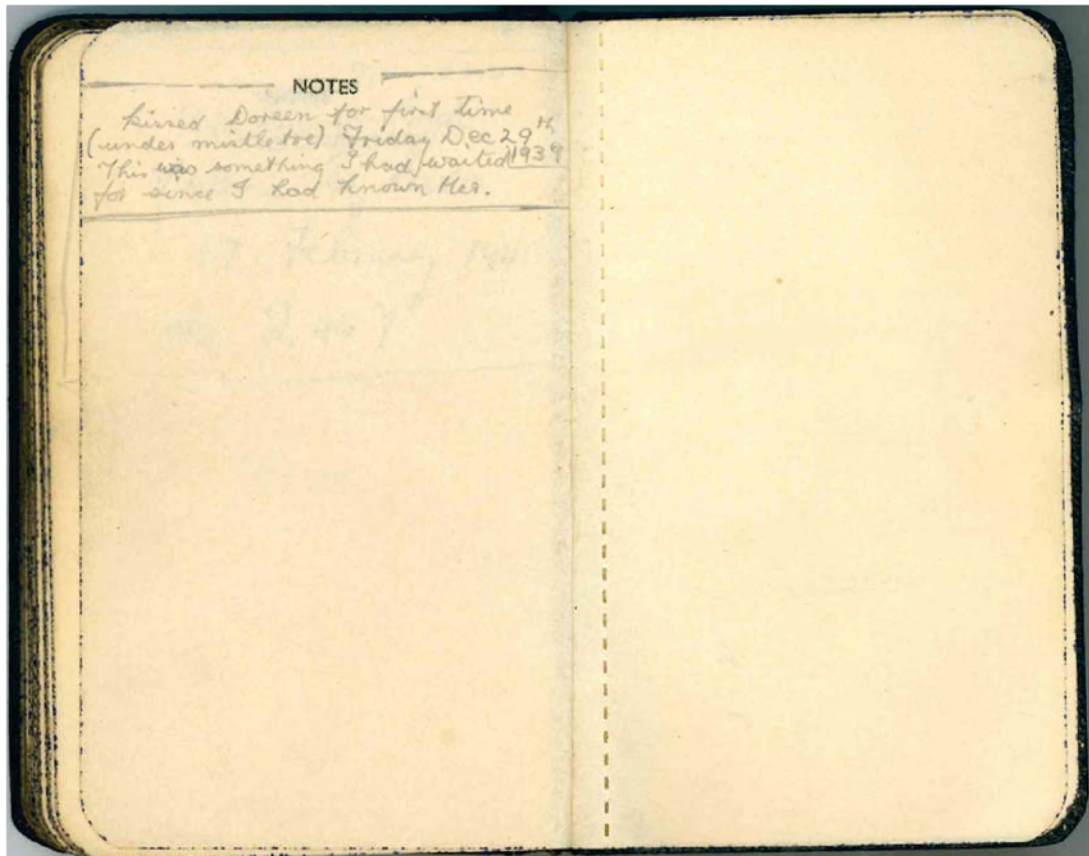 NOTES
kissed Doreen for first time
(under mistletoe) Friday Dec 29th
This was something I had waited 1939
for since I had known Her.
February